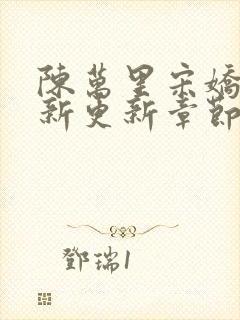 陳萬里宋嬌
新更新章節
鄧瑞1